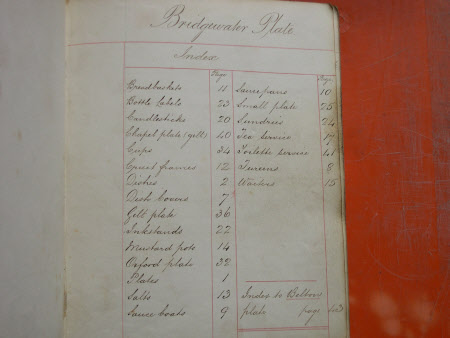 Bridgewater Plate
Index
Page
Breadbaskets 11
Bottle labels 23
Candlesticks 20
Chapel plate (gilt) 40
Cups 34
Cruet frames 12
Dishes 2
Dish covers 7
Gilt plate 36
Inkstands 22
Mustard pots 14
Oxford plate 32
Plates 1
Salts 13
Sauce boats 9
Page
Saucepans 10
Small plate 25
Sundries 24
Tea service
Toilette service 41
Tureens 8
Waiters 15
Index to Belton
plate page